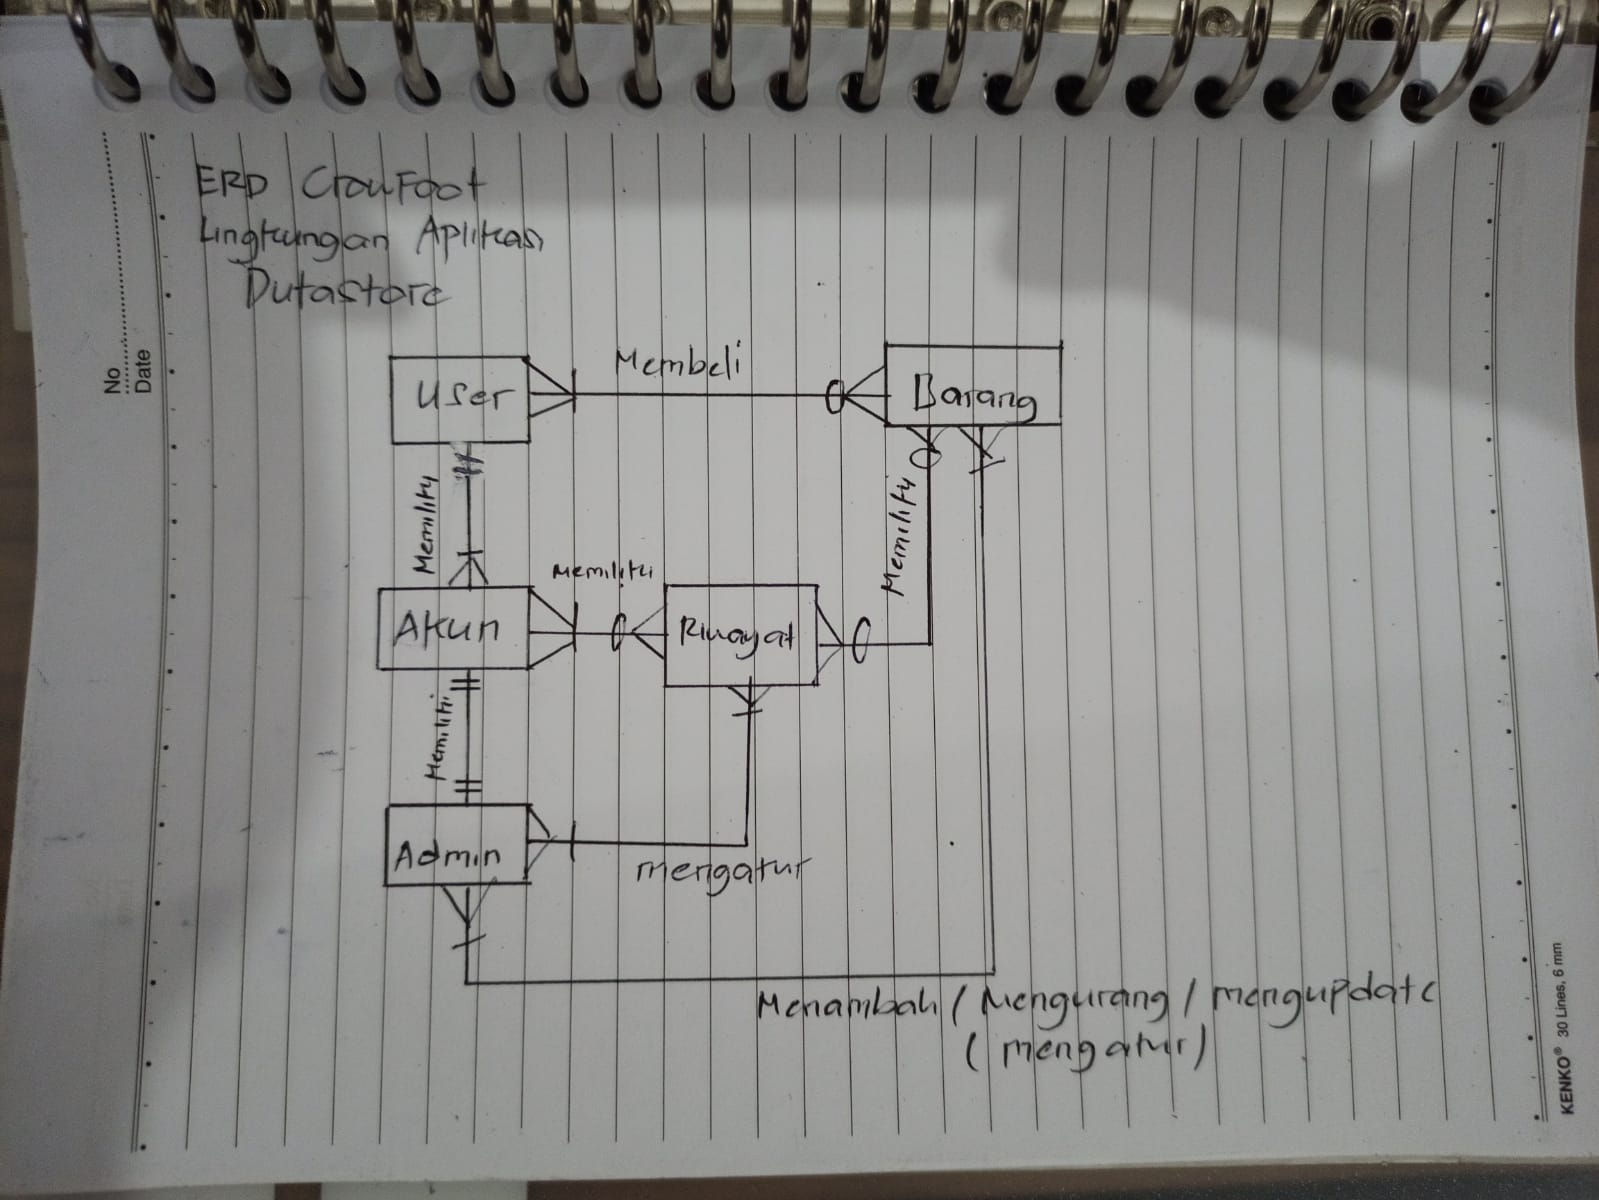 ERD CrowFoot
Lingkungan Aplikasi
Dutastore
No
Date
Membeli
User
Barang
Memiliki
Memiliki
Memiliki
Akun
Riwayat
Memiliki
Admin
mengatur
Menambah / Mengurang / mengupdate
( mengatur )
KENKO® 30 Lines, 6 mm